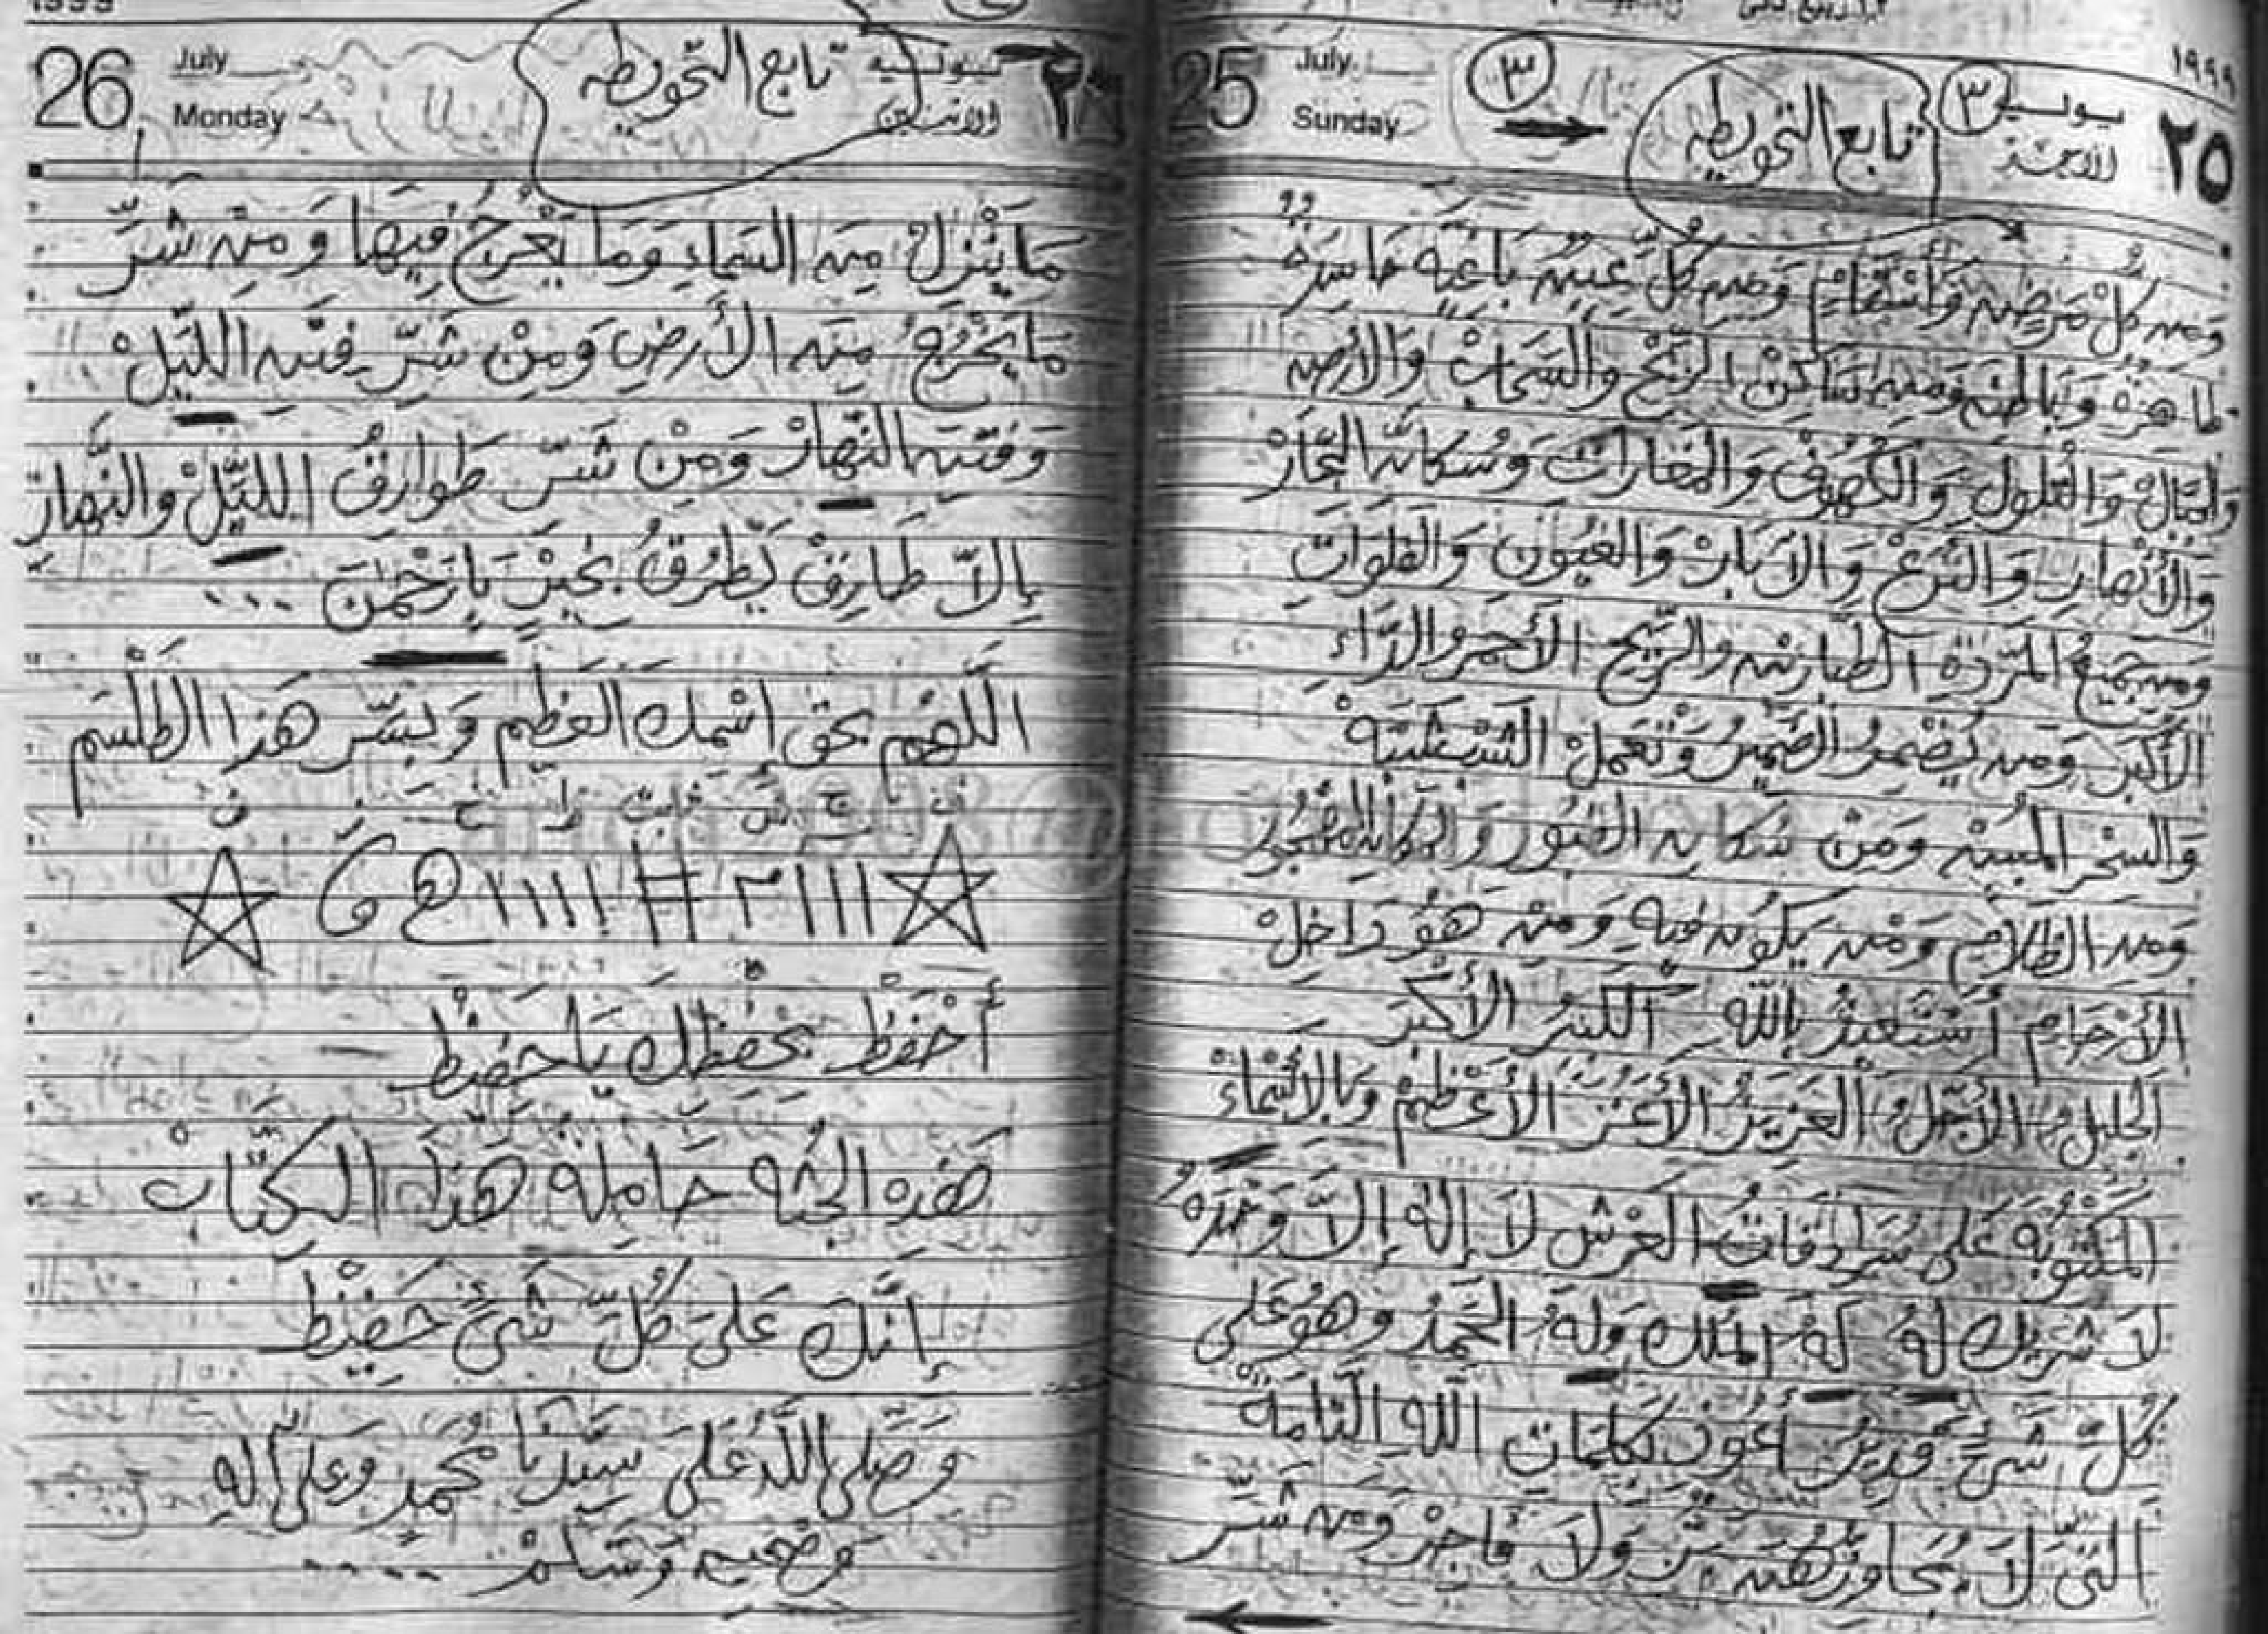 ١٩٩٩
٢٥ يوليه ٣ تابع التحويطه ٣ July 25
الأحد Sunday
وَمن كُلّ مَرَضٍ وَأسْقَامٍ وَمن كُلّ عَين بَاغيَه حَاسِدَةٍ
ظَاهرَة وَبَاطنَه وَمن سَاكن الرّيْح والسَّحَابْ وَالأرض
وَالجبَالْ وَالتلولِ وَالكُهُوفْ وَالمَغَارَات وَسُكَان البّحَارْ
وَالأنْهَارِ وَالتُرَعْ وَالآبَارْ وَالعُيُون وَالفَلَوَاتِ
وَمن جَمِيعُ المَرَدَة الطَيارين والرّيح الأحمَر والدَّاءِ
الأكْبَر وَمن يُضْمِرُ الضَمِيرْ وَتَعمَلْ
وَالسِحْرِ المُبين وَمِنْ سُكَان القبُور
وَمن الظَلامِ وَمَن يَكُون فيهِ وَمن هُوَ دَاخِلْ
الأرْحَامِ أسْتَعيذُ باللّه الكَبيرُ الأكْبَر
الجَليلُ الأجَلُ العَزيزُ الأعَز الأعْظَمْ وَبالأسْمَاءْ
المَكْتُوبَه عَلى سُرَادِقَاتُ العَرْش لاَ إلَهَ إلاَّ وَحْدَهُ
لاَ شَريكَ لهُ لَهُ المُلك وَلَهُ الحَمْدُ وهُوَ عَلى
كُلّ شَىْءٍ قَدِيرْ أعُوذ بكَلِمَاتِ اللّهِ التَامَة
التى لاَ يُجَاوِزهُنَ بَرّ وَلاَ فَاجِرْ وَمن شَرِّ
٢٦ يوليه تابع التّحويطه July 26
الاثنين Monday
مَا يَنْزل من السَماءِ وَمَا يَعْرُجُ فِيهَا وَمن شَرِّ
مَا يَخْرُجُ مِن الأَرضِ وَمِنْ شَرِّ فِتَن اللَيّلْ
وَفتَن النّهارْ وَمِنْ شَرّ طَوارقُ اللَيّلْ والنّهارِ
إلاّ طَارِقْ يَطْرُقُ بخَيرٍ يَا رَحْمَن ...
اللَّهُم بحَق إسْمك العَظِيمْ وَبسّر هَذا الطَلْسَم
☆ ||| ٣ # |||| ☆
أحْفَظْ بحفظِك يَا حَفِيظْ
هَذه الجُثه حَامِلَة هَذا الكِتَابْ
إنَّكَ عَلىَ كُلّ شَىْءٍ حَفِيظْ
وَصَلى اللّهُ عَلىَ سَيدنَا مُحَمدٍ وَعلى آلهِ
وَصَحبه وَسَلمْ .....